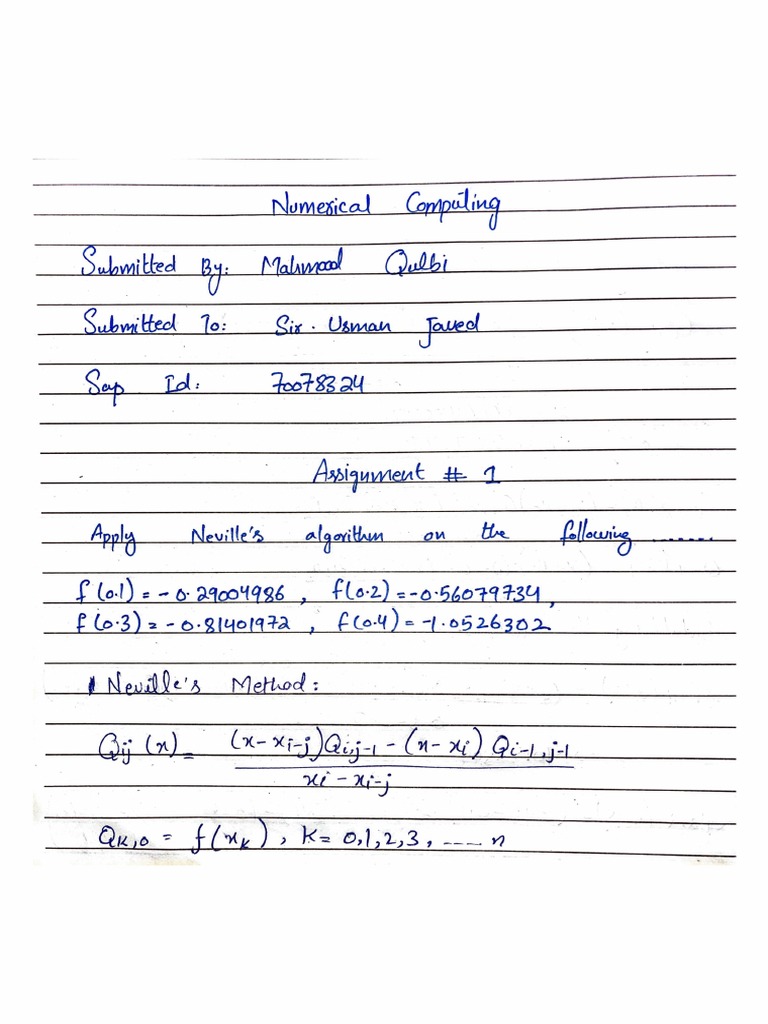 Numerical Computing
Submitted By: Mahmood Qulbi
Submitted To: Sir. Usman Javed
Sap Id: 70078324
Assignment # 1
Apply Neville's algorithm on the following .......
f(0.1) = -0.29004986, f(0.2) = -0.56079734,
f(0.3) = -0.81401972, f(0.4) = -1.0526302
Neville's Method:
Qij (x) = (x-xi-j)Qi,j-1 - (x-xi) Qi-1,j-1
xi - xi-j
QK,0 = f(xk), K= 0,1,2,3, ---- n